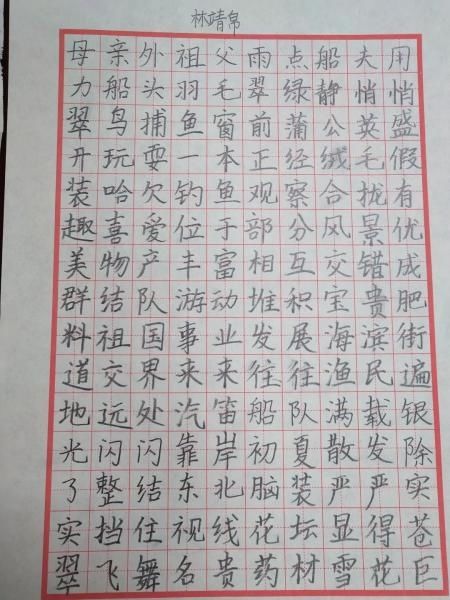 林靖帛
母亲外祖父雨点船夫用
力船头羽毛翠绿静悄悄
翠鸟捕鱼窗前蒲公英盛
开玩耍一本正经绒毛假
装哈欠钓鱼观察合拢有
趣喜爱位于部分风景优
美物产丰富相互交错成
群结队游动堆积宝贵肥
料祖国事业发展海滨街
道交界来来往往渔民遍
地远处汽笛船队满载银
光闪闪靠岸初夏散发除
了整结东北脑装严严实
实挡住视线花坛显得苍
翠飞舞名贵药材雪花巨